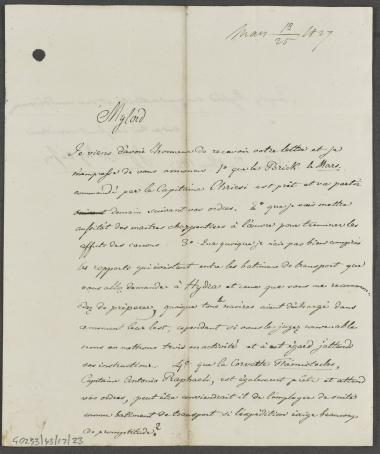 Mars 13/25 1827
Mylord
Je viens d'avoir l'honneur de recevoir votre lettre et je
m'empresse de vous annoncer 1º que le Brick le Mars
commandé par le Capitaine Chriesi est prêt et va partir
demain suivant vos ordres. 2º que je vais mettre
aussitôt des maitres charpentiers à l'œuvre pour terminer les
affuts des canons. 3º Que quoique je n'aie pas bien compris
les rapports qui existent entre les batimens de transport que
vous allez demander à Hydra et ceux que vous me recomman-
dez de préparer, quoique les navires aient déchargé dans
leur lest, cependant si vous le jugez convenable
nous en mettrons trois en activité et à cet égard j'attends
vos instructions. 4º que la Corvette Thémistocles,
Capitaine Antonio Raphaeli, est également prête et attend
vos ordres, peut être conviendrait il de l'employer de suite
comme batiment de transport si l'expédition exige beaucoup
de promptitude?
GD233/43/17/23